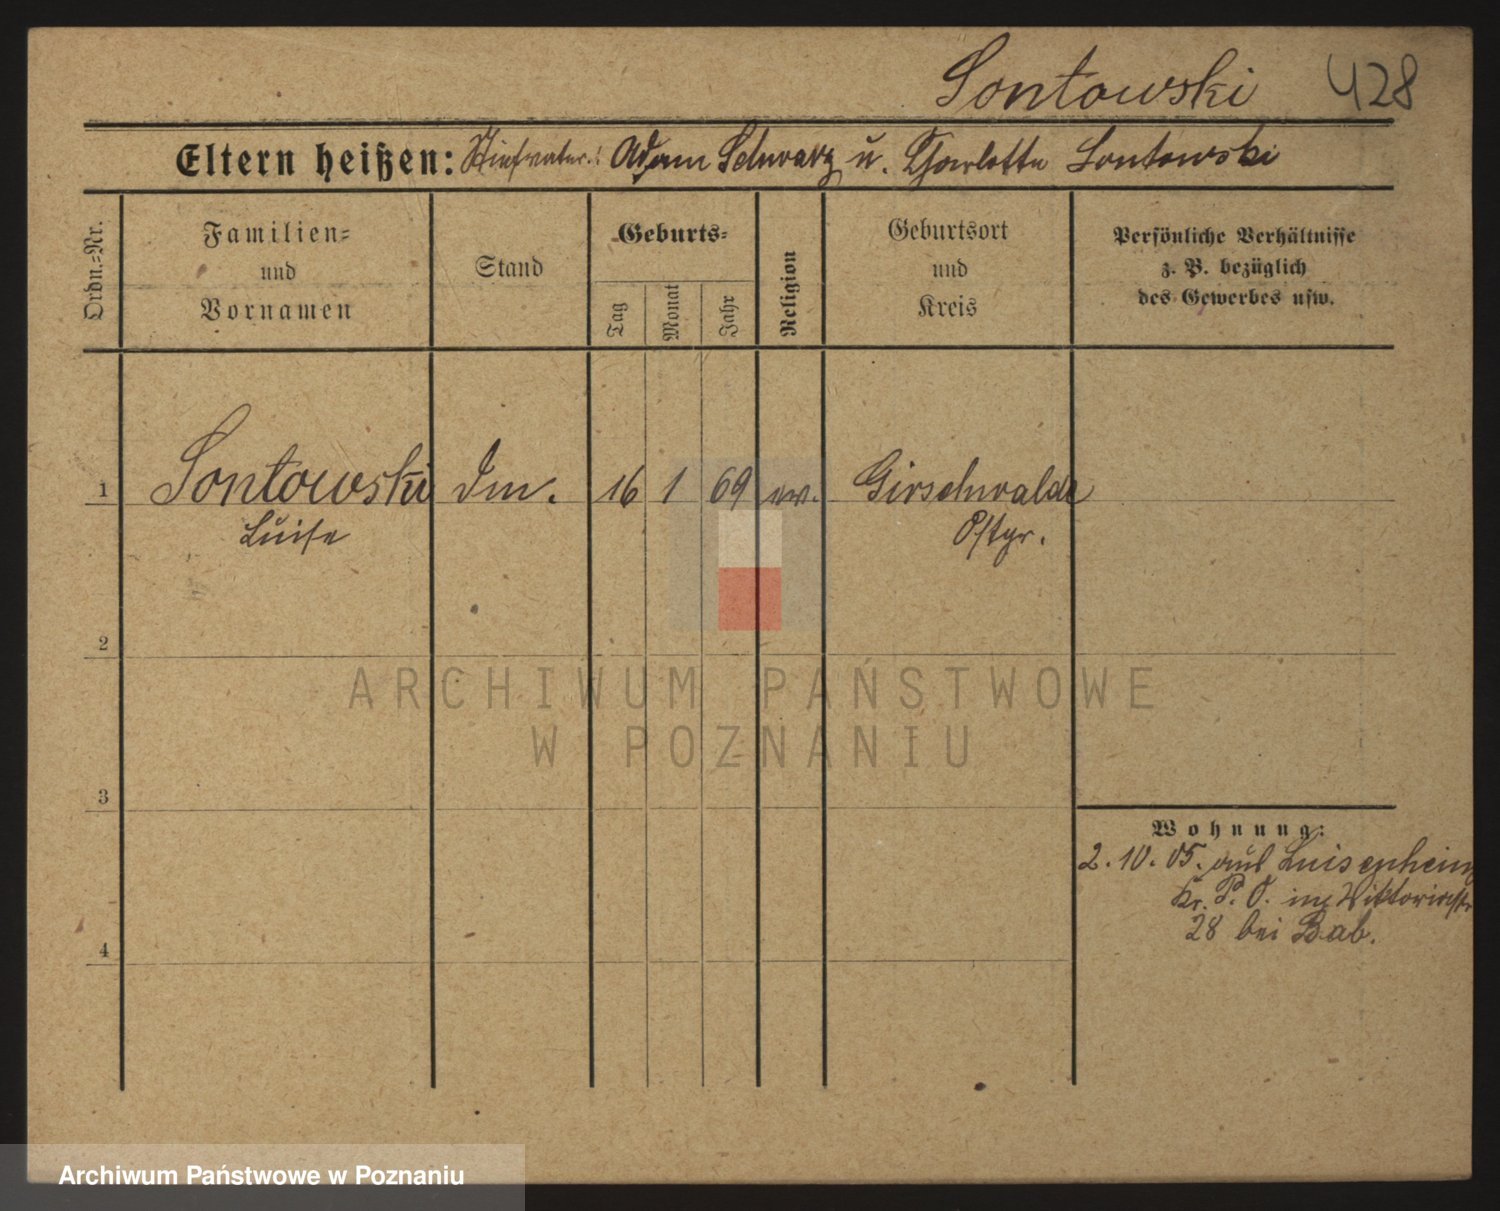 Sontowski 428
Eltern heißen: Stiefvater: Adam Schwarz u. Charlotte Sontowski
Ordn.-Nr.
Familien-
und
Vornamen
Stand
Geburts-
Tag
Monat
Jahr
Religion
Geburtsort
und
Kreis
Persönliche Verhältnisse
z. B. bezüglich
des Gewerbes usw.
1 Sontowski 16 1 69 ev. Girschwalde
Luise Ostpr.
2
ARCHIWUM PAŃSTWOWE
W POZNANIU
3
Wohnung:
2. 10. 05. aus Luisenhein
Kr. P. O. in Viktoriastr
28 bei Bab.
4
Archiwum Państwowe w Poznaniu